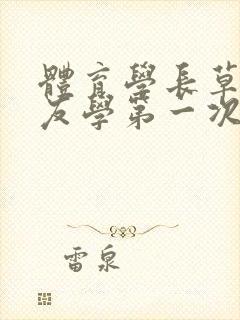 體育學長草
友學第一次
雷泉